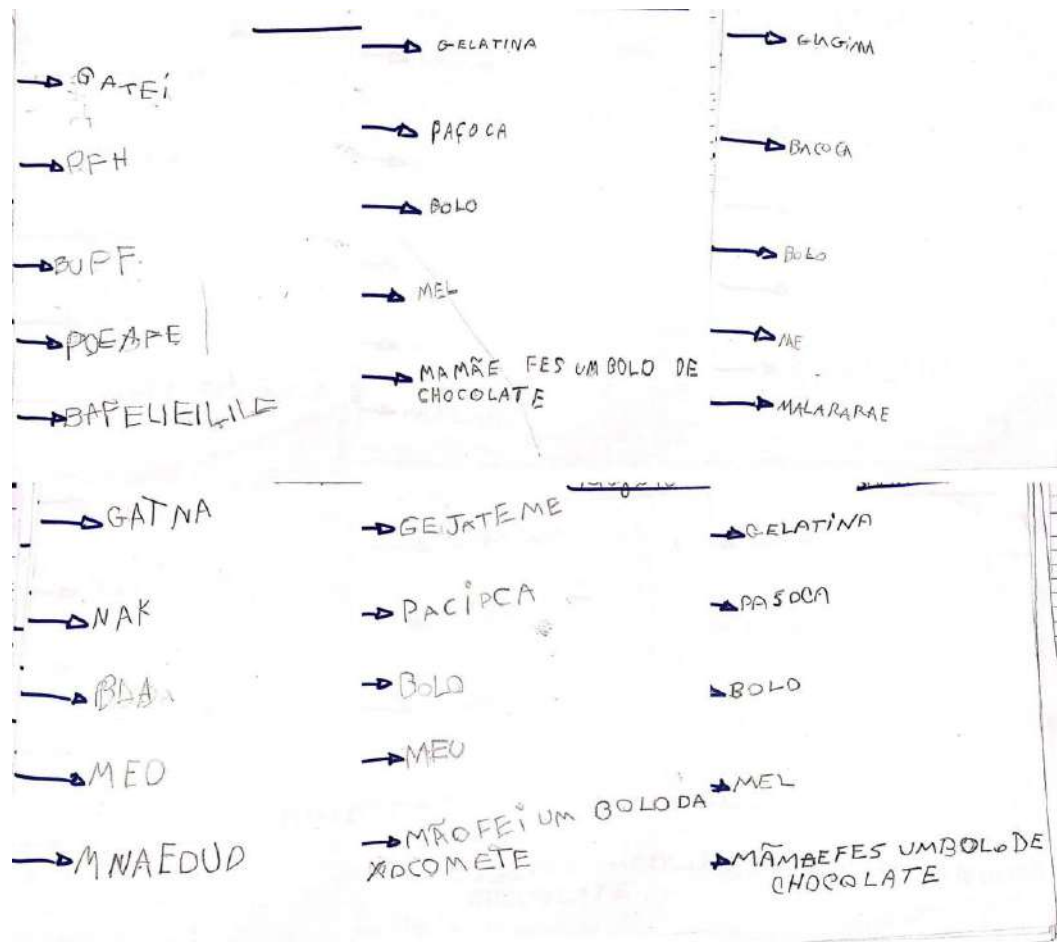 GATEI
PFH
BUPF
POEAPE
BAPELIEILILE
GELATINA
PAÇOCA
BOLO
MEL
MAMÃE FES UM BOLO DE
CHOCOLATE
GUGIMA
BACOCA
BOLO
ME
MALARARAE
GATNA
NAK
BLA
MEO
MNAEDUD
GEJATEME
PACIPCA
BOLO
MEU
MÃO FEI UM BOLO DA
XOCOMETE
GELATINA
PASOCA
BOLO
MEL
MÃMAEFES UMBOLO DE
CHOCOLATE